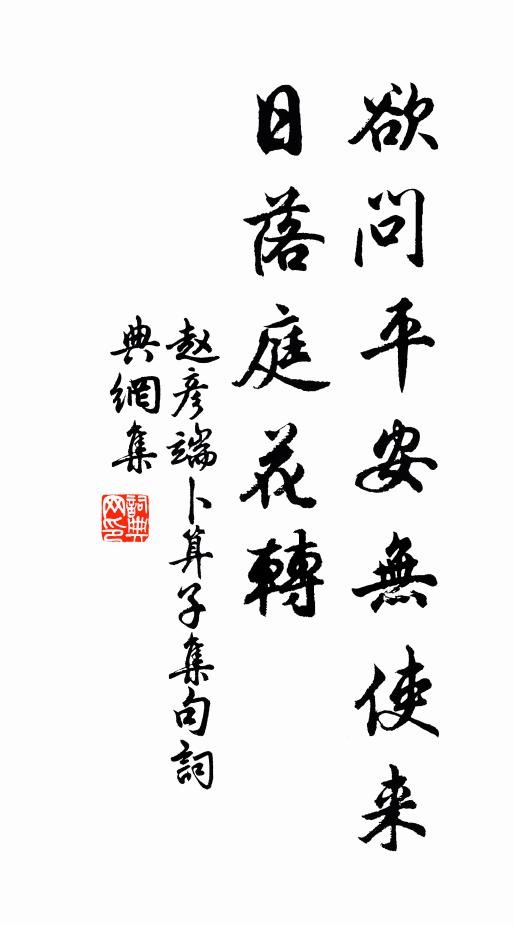 欲問平安無使来
日落庭花轉
赵彦端卜算子集句詞
典網集
詞典网印